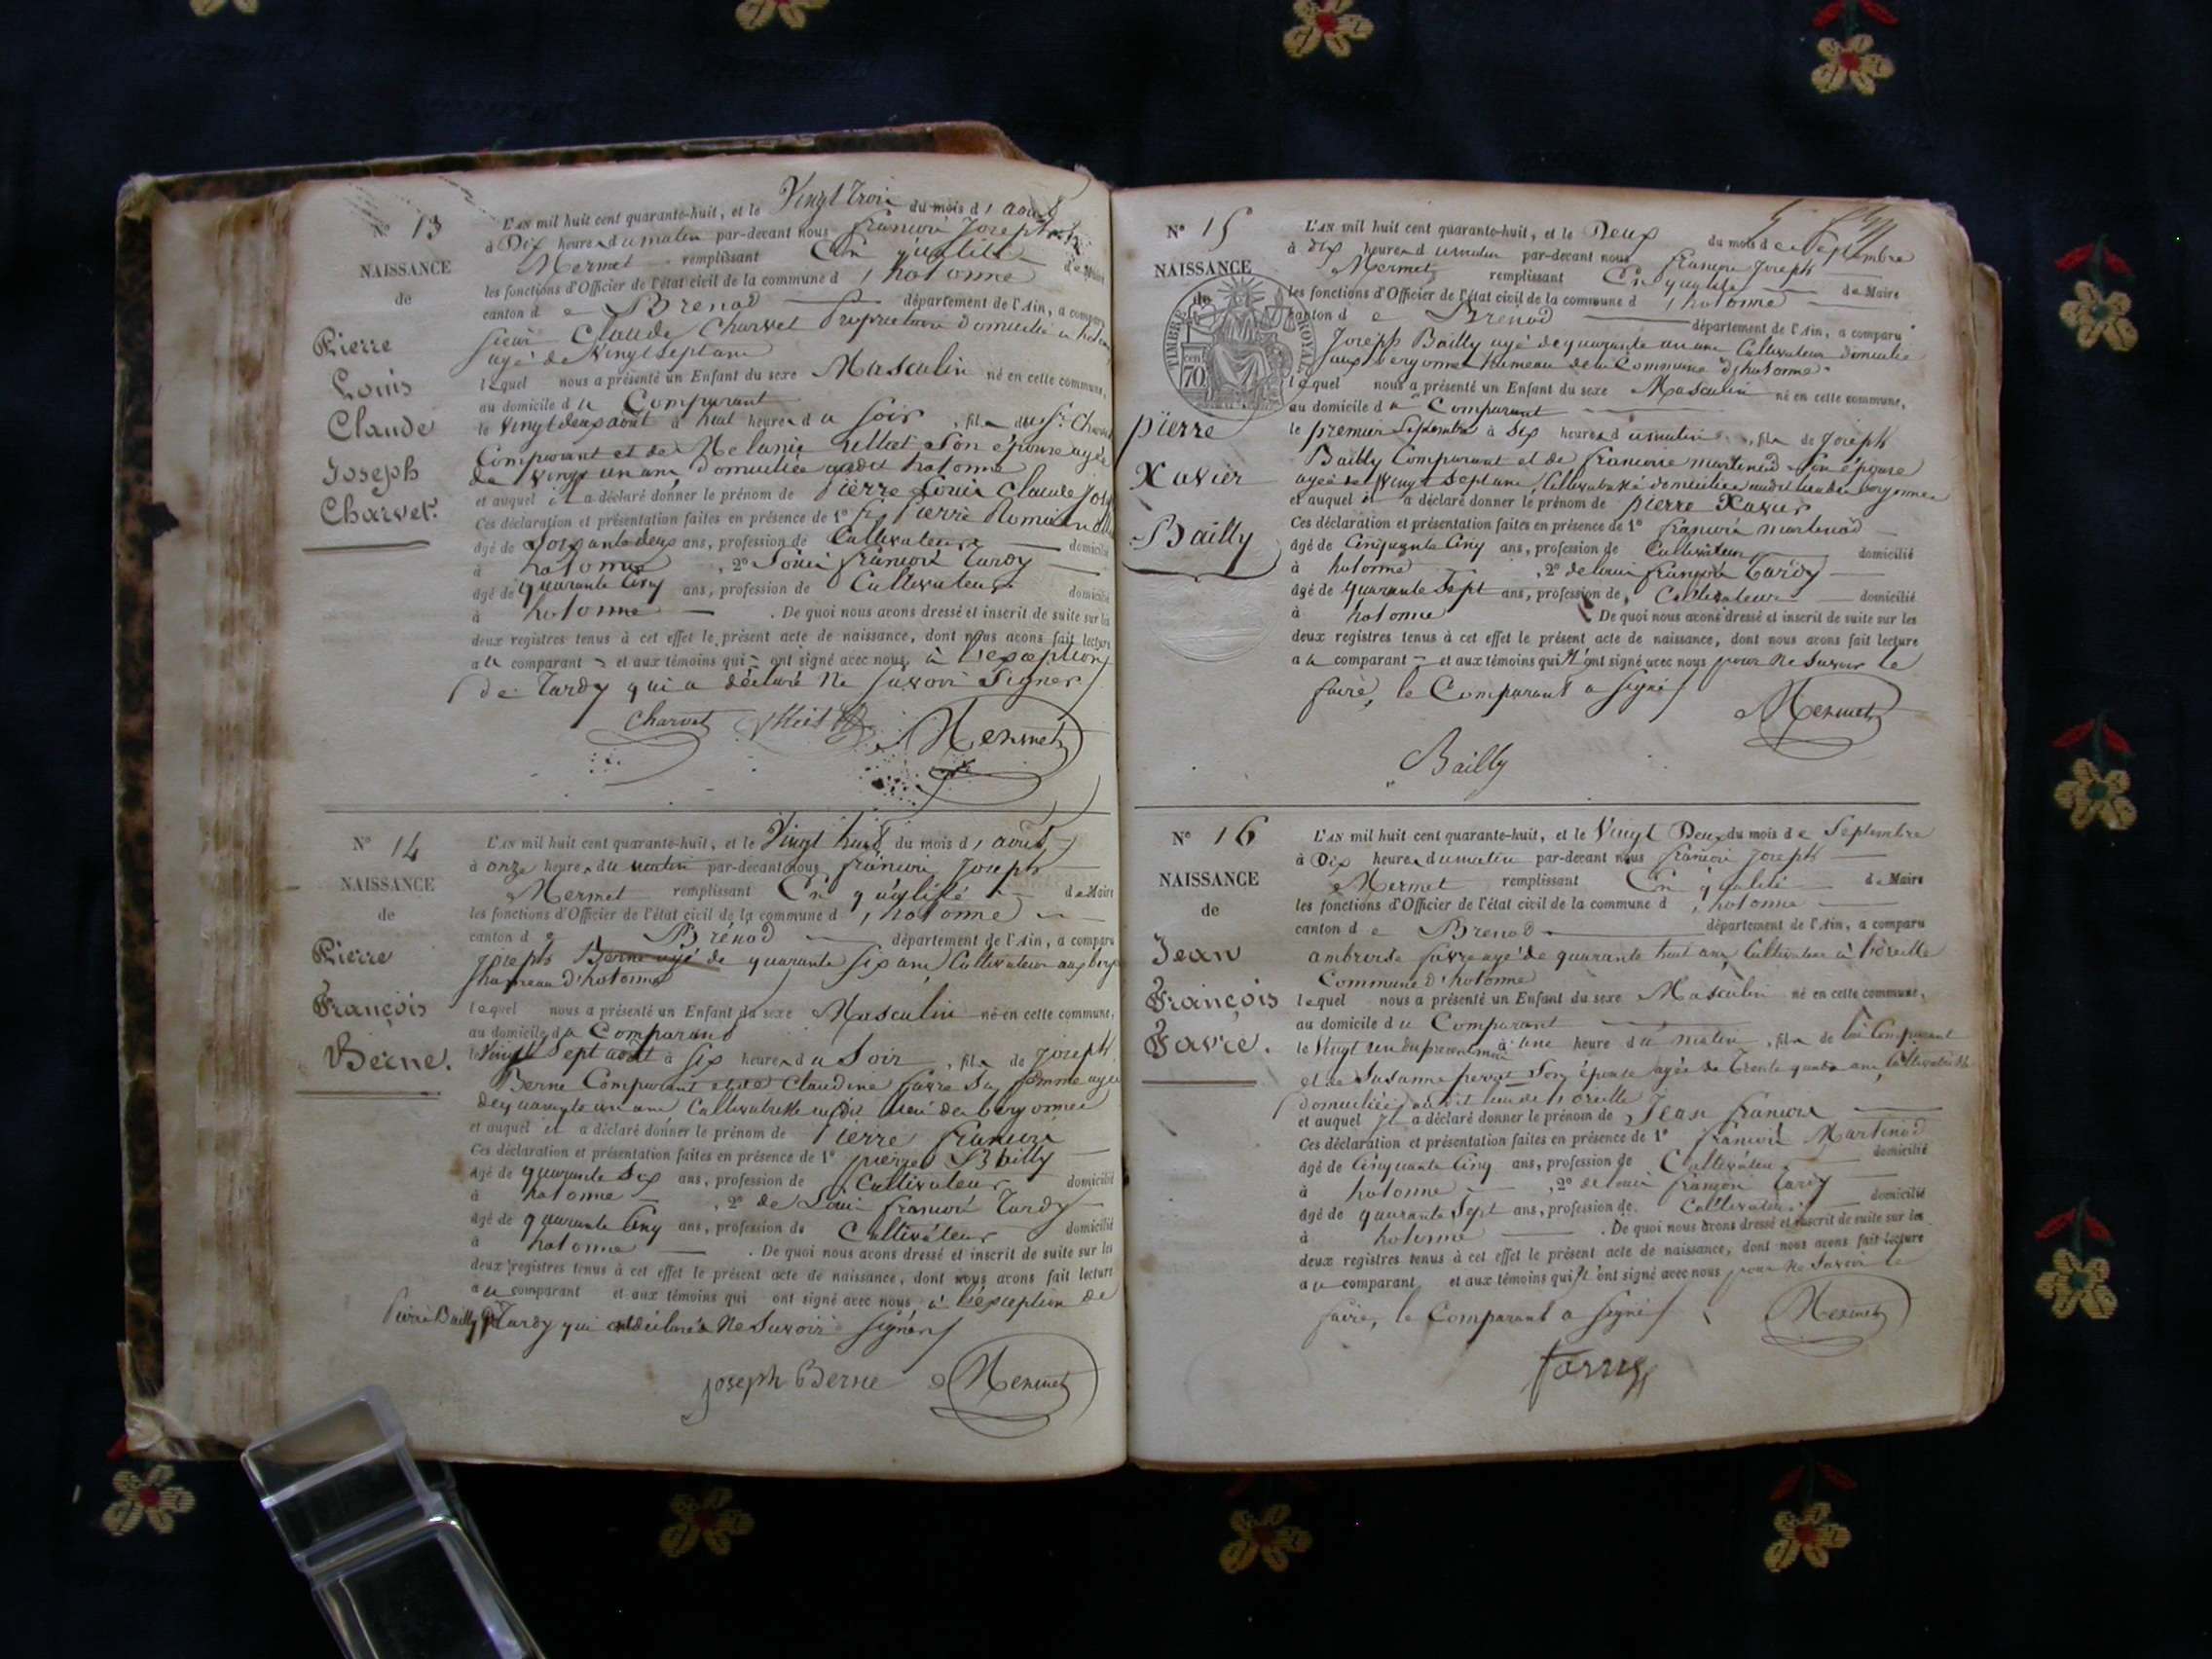 N° 13
NAISSANCE
de
Pierre
Louis
Claude
Joseph
Charvet.
L'AN mil huit cent quarante-huit, et le Vingt trois du mois d'aout
à Dix heures du matin par-devant nous françois Joseph
Mermet remplissant En qualité de Maire
les fonctions d'Officier de l'état civil de la commune d'hotonne
canton de Brenod département de l'Ain, a comparu
sieur Claude Charvet Proprietaire domicilié a hotonne
agé de Vingt sept ans
lequel nous a présenté un Enfant du sexe Masculin né en cette commune,
au domicile du Comparant
le Vingt deux août à huit heures du soir, fils du Sr Charvet
Comparant et de Melanie son épouse agée
de vingt un ans, domiciliée audit hotonne
et auquel il a déclaré donner le prénom de Pierre Louis Claude Joseph
Ces déclaration et présentation faites en présence de 1° Pierre Romain
âgé de Soixante deux ans, profession de Cultivateur domicilié
à hotonne, 2° Louis françois Tardy
âgé de quarante Cinq ans, profession de Cultivateur domicilié
à hotonne . De quoi nous avons dressé et inscrit de suite sur les
deux registres tenus à cet effet le présent acte de naissance, dont nous avons fait lecture
au comparant et aux témoins qui ont signé avec nous, à l'exception
de Tardy qui a déclaré Ne savoir Signer
Charvet Mermet
N° 14
NAISSANCE
de
Pierre
François
Berne.
L'AN mil huit cent quarante-huit, et le Vingt huit du mois d'août
à onze heures du matin par-devant nous françois Joseph
Mermet remplissant En qualité de Maire
les fonctions d'Officier de l'état civil de la commune d'hotonne
canton de Brénod département de l'Ain, a comparu
Joseph Berne agé de quarante six ans, Cultivateur aux
hameau d'hotonne
lequel nous a présenté un Enfant du sexe Masculin né en cette commune,
au domicile du Comparant
le Vingt Sept août à six heures du Soir, fils de Joseph
Berne Comparant et de Claudine favre Sa femme agée
de quarante un ans Cultivatrice audit lieu des bergonnes
et auquel il a déclaré donner le prénom de Pierre françois
Ces déclaration et présentation faites en présence de 1° pierre Bailly
âgé de quarante Six ans, profession de Cultivateur domicilié
à hotonne, 2° de Louis françois Tardy
âgé de quarante Cinq ans, profession de Cultivateur domicilié
à hotonne . De quoi nous avons dressé et inscrit de suite sur les
deux registres tenus à cet effet le présent acte de naissance, dont nous avons fait lecture
au comparant et aux témoins qui ont signé avec nous, à l'exception de
Pierre Bailly et Tardy qui ont déclaré Ne savoir signer
Joseph Berne Mermet
N° 15
NAISSANCE
de
TIMBRE ROYAL
cen 70
pierre
Xavier
Bailly
L'AN mil huit cent quarante-huit, et le Deux du mois de Septembre
à dix heures du matin par-devant nous françois Joseph
Mermet remplissant En qualité de Maire
les fonctions d'Officier de l'état civil de la commune d'hotonne
canton de Brenod département de l'Ain, a comparu
Joseph Bailly agé de quarante un ans Cultivateur domicilié
aux bergonnes hameau de la Commune d'hotonne
lequel nous a présenté un Enfant du sexe Masculin né en cette commune,
au domicile du Comparant
le premier Septembre à Six heures du matin, fils de Joseph
Bailly Comparant et de francoise martinod Son épouse
agée de Vingt Sept ans, Cultivatrice domiciliée audit lieu des bergonnes
et auquel il a déclaré donner le prénom de pierre Xavier
Ces déclaration et présentation faites en présence de 1° françois martinod
âgé de Cinquante Cinq ans, profession de Cultivateur domicilié
à hotonne, 2° de louis françois Tardy
âgé de quarante Sept ans, profession de Cultivateur domicilié
à hotonne De quoi nous avons dressé et inscrit de suite sur les
deux registres tenus à cet effet le présent acte de naissance, dont nous avons fait lecture
au comparant et aux témoins qui N'ont signé avec nous pour Ne savoir le
faire, le Comparant a signé
Mermet
Bailly
N° 16
NAISSANCE
de
Jean
François
Favre.
L'AN mil huit cent quarante-huit, et le Vingt Deux du mois de Septembre
à Dix heures du matin par-devant nous françois Joseph
Mermet remplissant En qualité de Maire
les fonctions d'Officier de l'état civil de la commune d'hotonne
canton de Brenod département de l'Ain, a comparu
ambroise favre agé de quarante huit ans, Cultivateur à l'oreille
Commune d'hotonne
lequel nous a présenté un Enfant du sexe Masculin né en cette commune,
au domicile du Comparant
le Vingt un du present mois à une heure du matin, fils de lui Comparant
et de Susanne perret Son épouse agée de Trente quatre ans, Cultivatrice
domiciliée audit lieu de l'oreille
et auquel Il a déclaré donner le prénom de Jean françois
Ces déclaration et présentation faites en présence de 1° françois Martinod
âgé de Cinquante Cinq ans, profession de Cultivateur domicilié
à hotonne, 2° de louis françois Tardy
âgé de quarante Sept ans, profession de Cultivateur domicilié
à hotonne . De quoi nous avons dressé et inscrit de suite sur les
deux registres tenus à cet effet le présent acte de naissance, dont nous avons fait lecture
au comparant et aux témoins qui N'ont signé avec nous pour Ne savoir le
faire, le Comparant a signé
Mermet